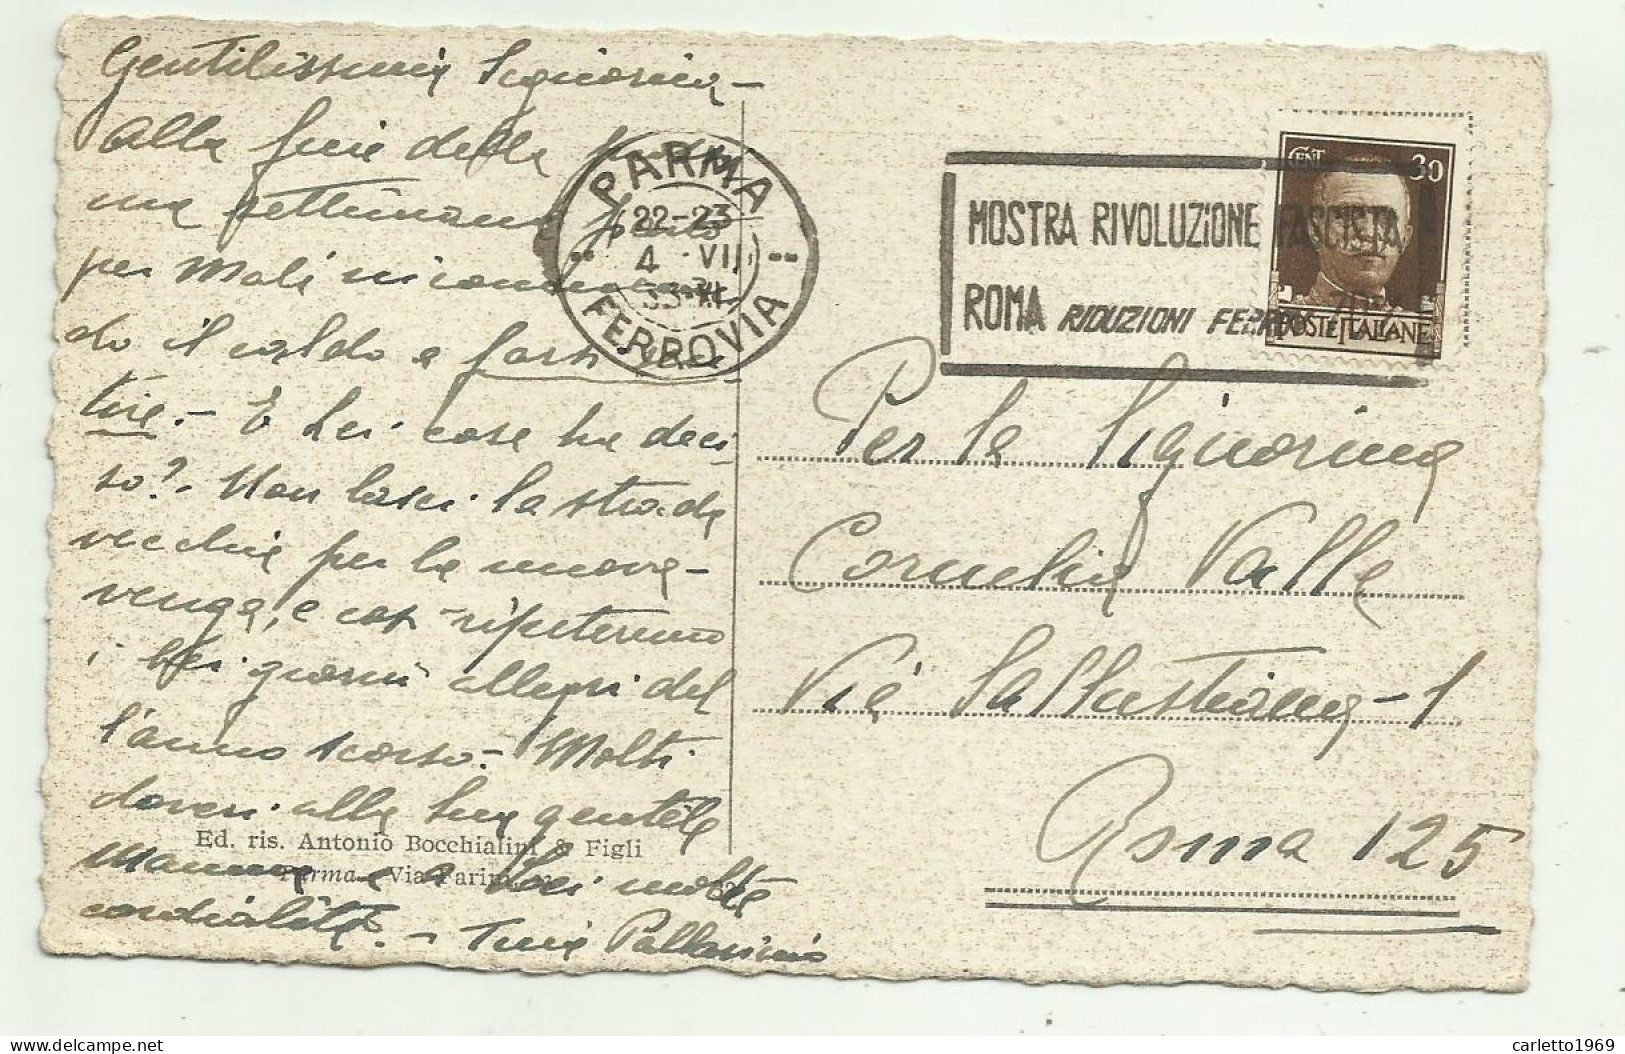 Gentilissima Signorina -
alla fine della
ma settimana parto
per Mali ricomincian
do il caldo a farsi sen
tire. - E Lei cosa ha deci
so? - Non lasci la strada
vecchia per la nuova -
venga, e così ripeteremo
i bei giorni allegri del
l'anno scorso. - Molti
doveri alla Sua gentile
Mamma e a Lei molte
cordialità. - Tina Pallavicino
Ed. ris. Antonio Bocchialini & Figli
Parma - Via Farini
PARMA
22-23
4 · VII
33·XI
FERROVIA
MOSTRA RIVOLUZIONE FASCISTA
ROMA RIDUZIONI FERROV. 70%
CENT 30
POSTE ITALIANE
Per la Signorina
Cornelia Valle
Via Sallustiana - 1
Roma 125
carletto1969
delcampe.net